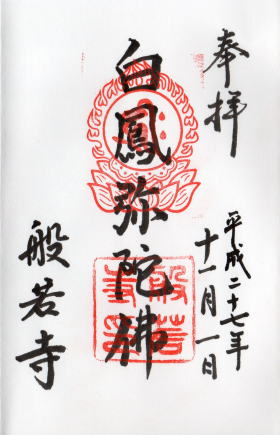 奉拝
平成二十七年
十一月一日
白鳳弥陀佛
般若寺